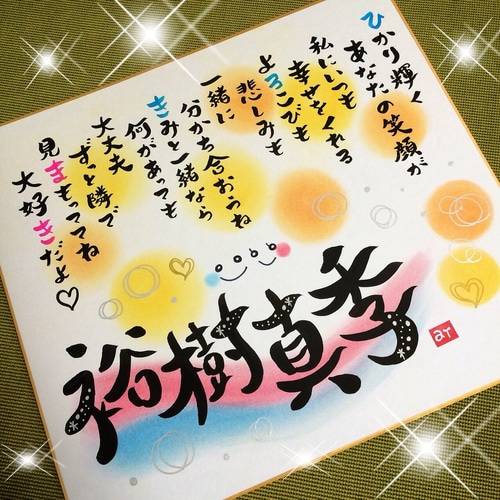 ひかり輝く
あなたの笑顔が
私にいつも
幸せをくれる
よろこびも
悲しみも
一緒に
分かち合おうね
きみと一緒なら
何があっても
大丈夫
ずっと隣で
見まもっててね
大好きだよ♡
裕樹真季
ar